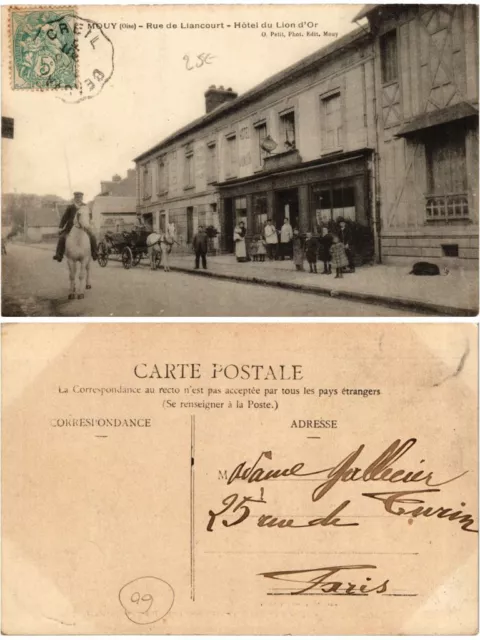 CREIL
5
MOUY (Oise) - Rue de Liancourt - Hôtel du Lion d'Or
O. Petit, Phot. Edit. Mouy
25E
HOTEL
CARTE POSTALE
La Correspondance au recto n'est pas acceptée par tous les pays étrangers
(Se renseigner à la Poste.)
CORRESPONDANCE
ADRESSE
Madame Gallicier
25 rue de Turin
Paris
99